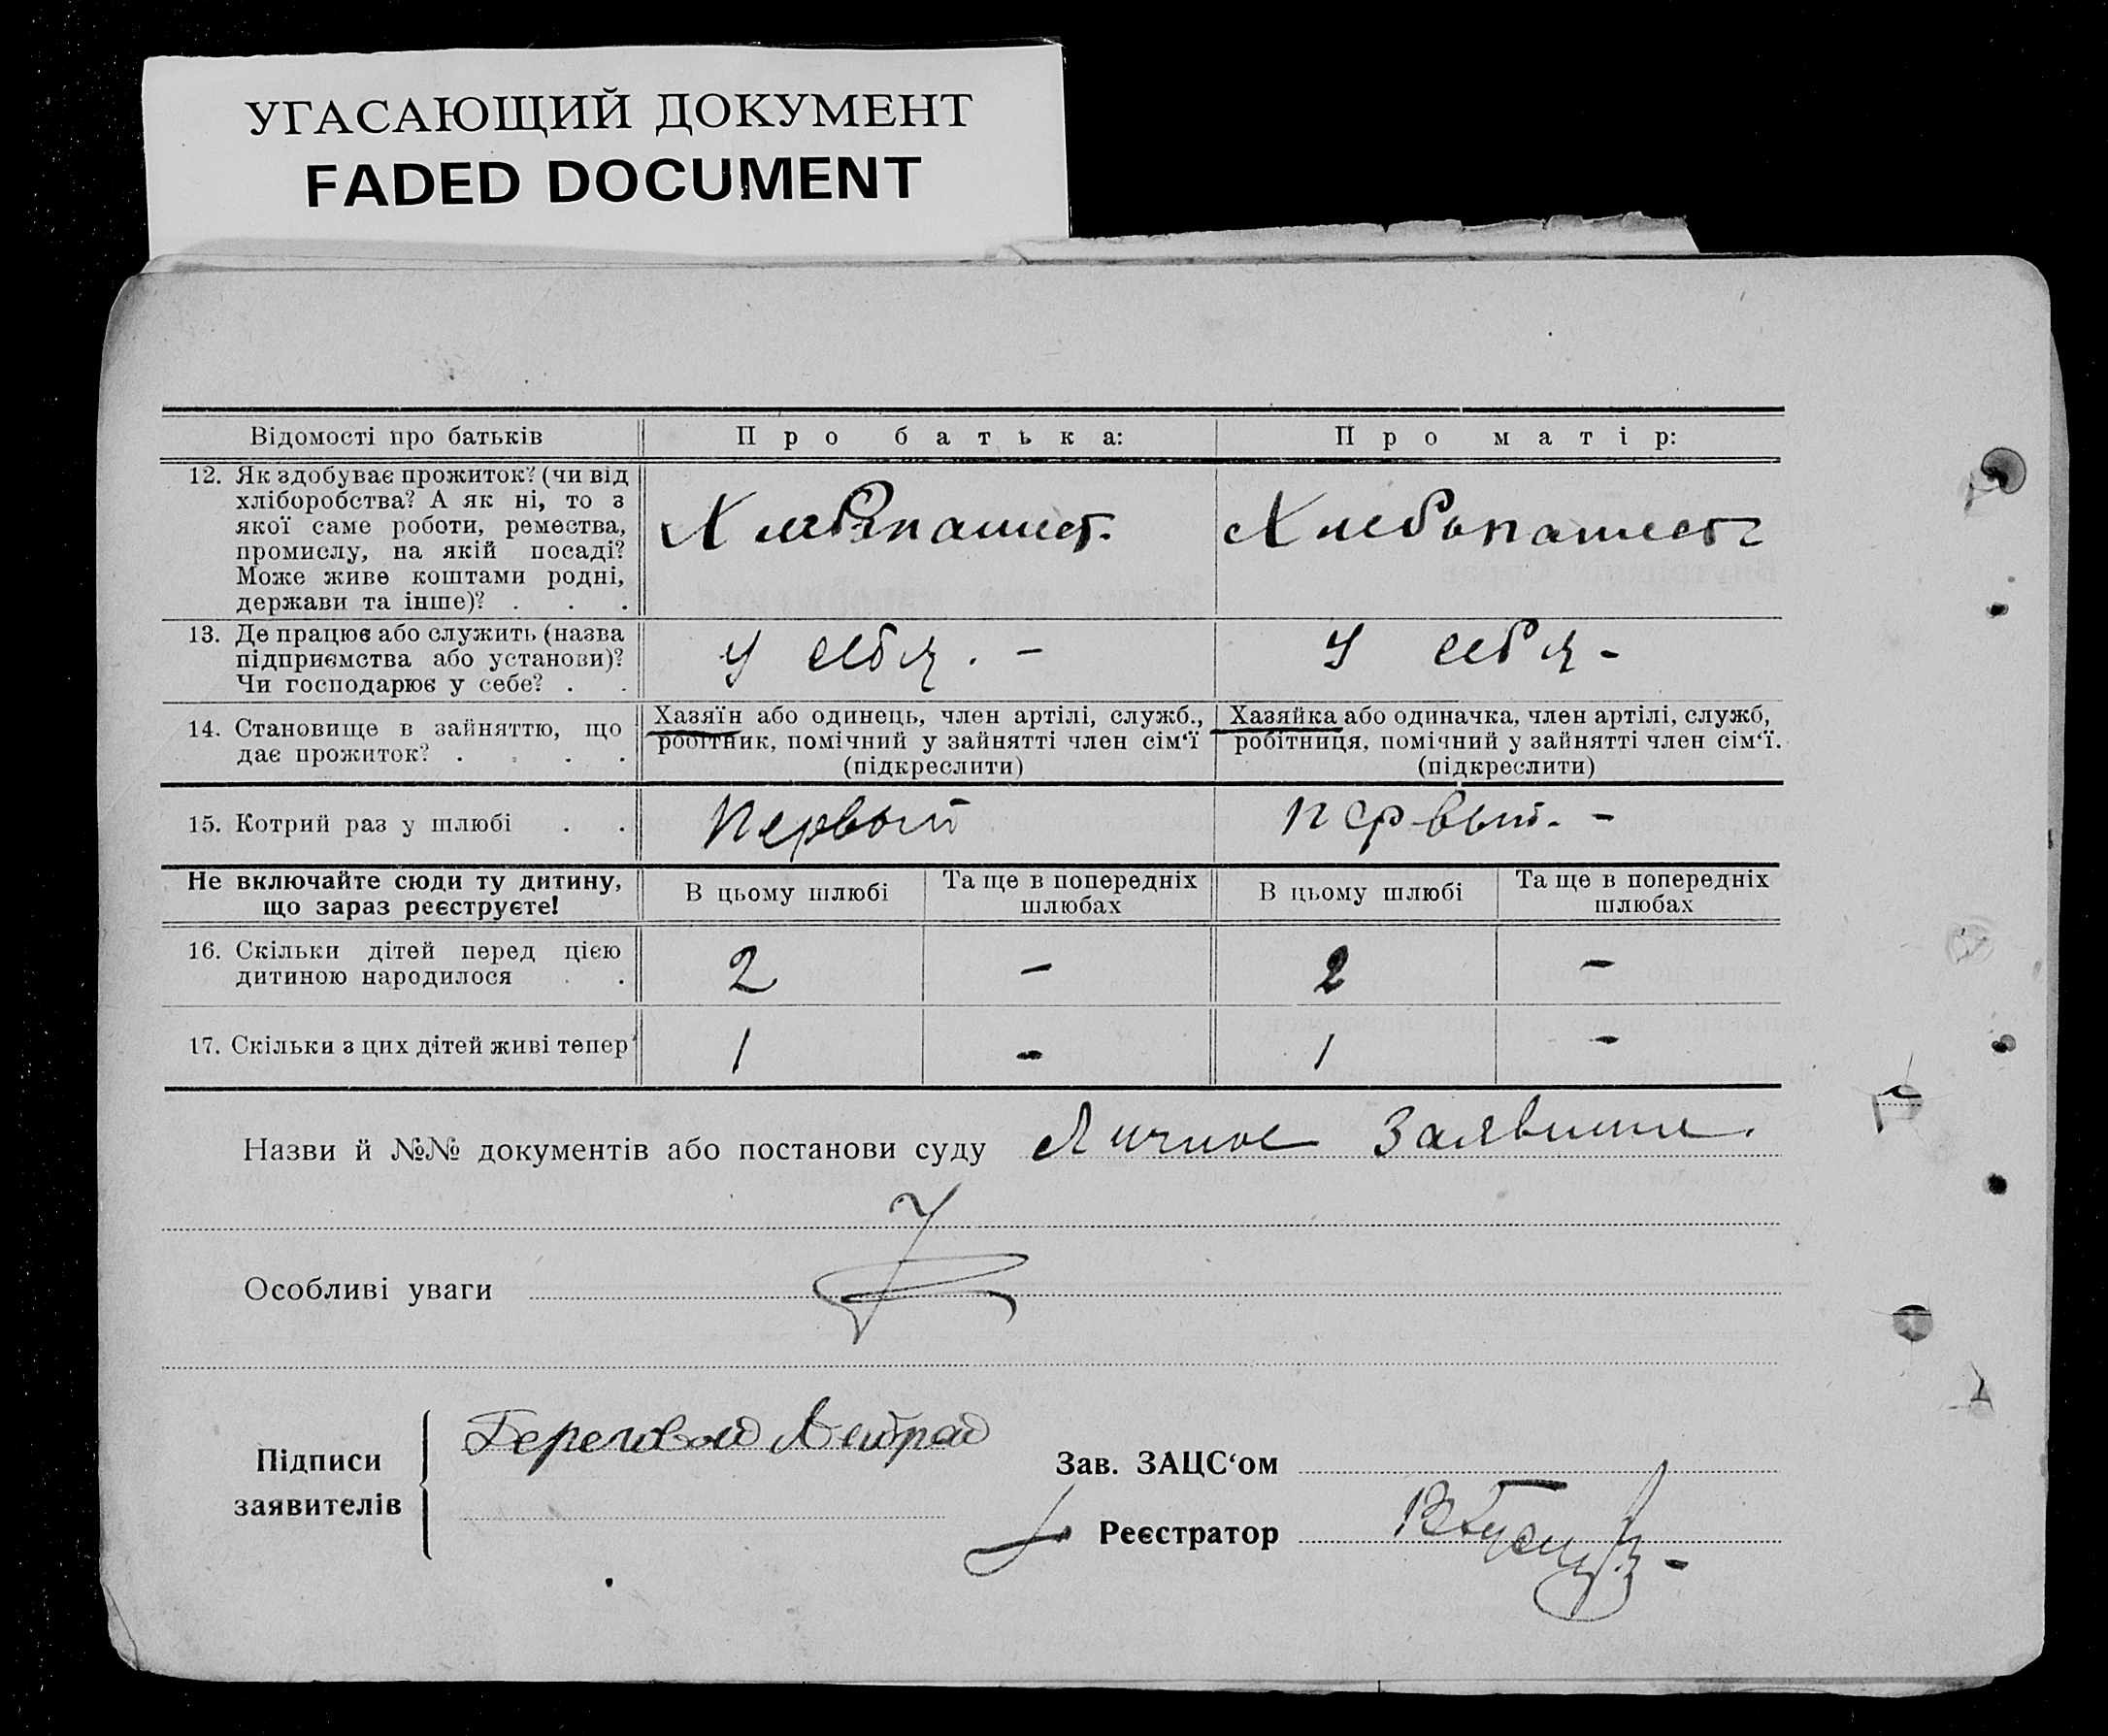 УГАСАЮЩИЙ ДОКУМЕНТ
FADED DOCUMENT
Відомості про батьків
Про батька:
Про матір:
12. Як здобуває прожиток? (чи від
хліборобства? А як ні, то з
якої саме роботи, ремества,
промислу, на якій посаді?
Може живе коштами родні,
держави та інше)? . . .
Хлебопашест.
Хлебопашест
13. Де працює або служить (назва
підприємства або установи)?
Чи господарює у себе? . .
У себя. -
У себя -
14. Становище в зайняттю, що
дає прожиток? . . . .
Хазяїн або одинець, член артілі, служб.,
робітник, помічний у зайнятті член сім‘ї
(підкреслити)
Хазяйка або одиначка, член артілі, служб,
робітниця, помічний у зайнятті член сім‘ї.
(підкреслити)
15. Котрий раз у шлюбі . .
Первый
первый. -
Не включайте сюди ту дитину,
що зараз реєструєте!
В цьому шлюбі
Та ще в попередніх
шлюбах
В цьому шлюбі
Та ще в попередніх
шлюбах
16. Скільки дітей перед цією
дитиною народилося . .
2
-
2
-
17. Скільки з цих дітей живі тепер
1
-
1
-
Назви й №№ документів або постанови суду Личное Заявление.
Особливі уваги
Підписи
заявителів
Береговой
Зав. ЗАЦС‘ом
Реєстратор